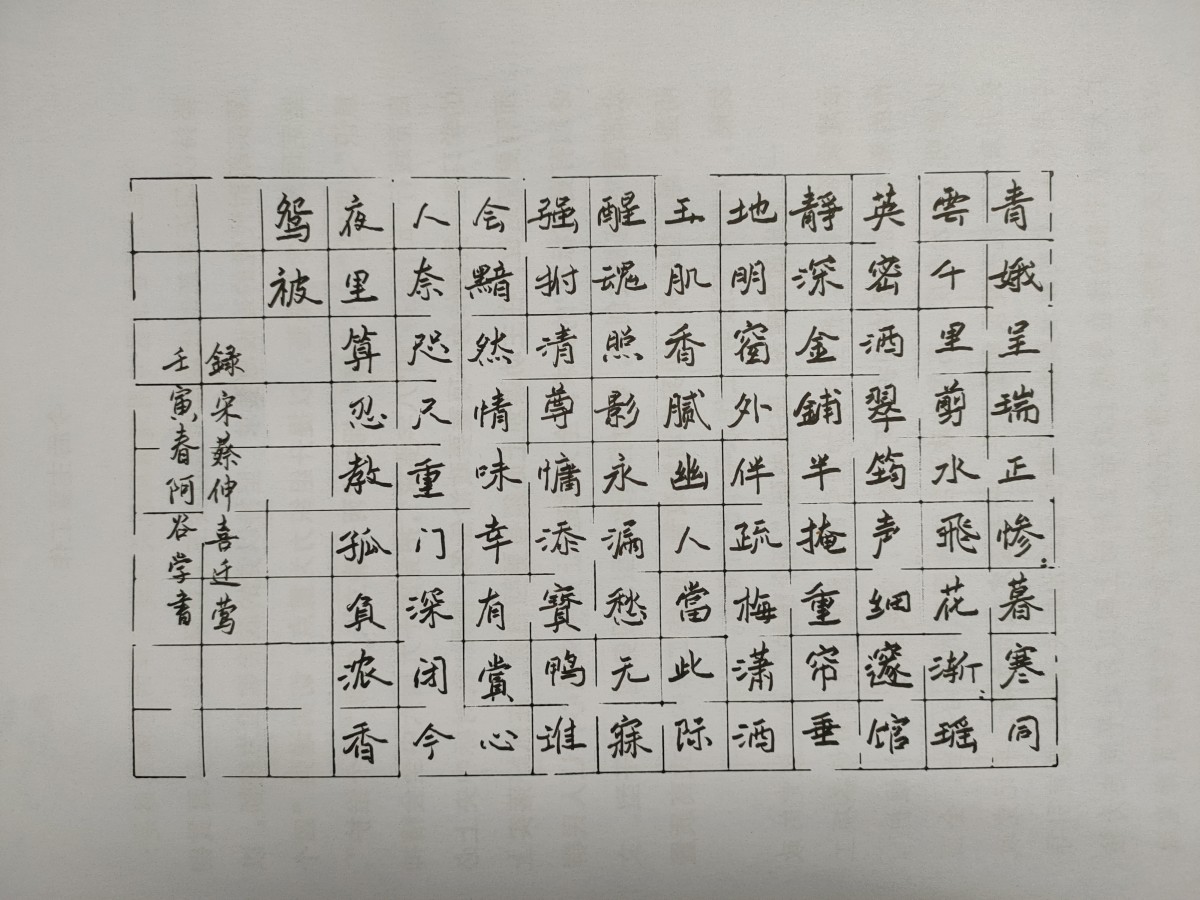 青娥呈瑞正惨暮寒同
雲千里剪水飛花渐瑶
英密洒翠筠声细邃馆
靜深金鋪半掩重帘垂
地明窗外伴疏梅潇洒
玉肌香腻幽人當此际
醒魂照影永漏愁无寐
强拊清尊慵添寶鸭谁
会黯然情味幸有賞心
人奈咫尺重门深闭今
夜里算忍教孤負浓香
鸳被
録宋蔡伸喜迁莺
壬寅春阿谷学書